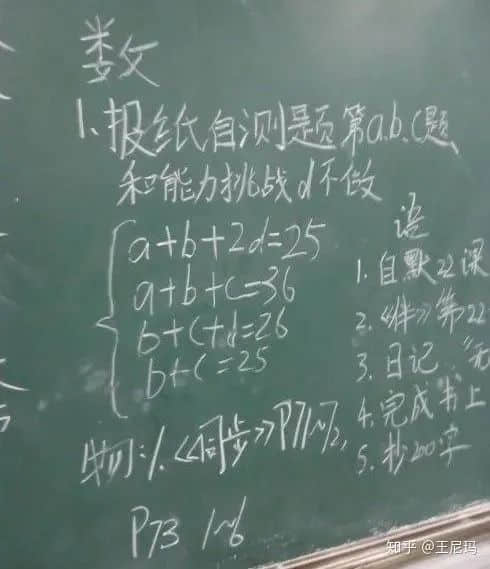 娄文
1、报纸自测题第a.b.c题
和能力挑战d不做
a+b+2d=25
a+b+c=36
b+c+d=26
b+c=25
物:1.《同步》P71~72,
P73 1~6
语
1. 自默22课
2.《伴》第22
3. 日记:“无
4. 完成书上
5. 抄200字
知乎 @王尼玛